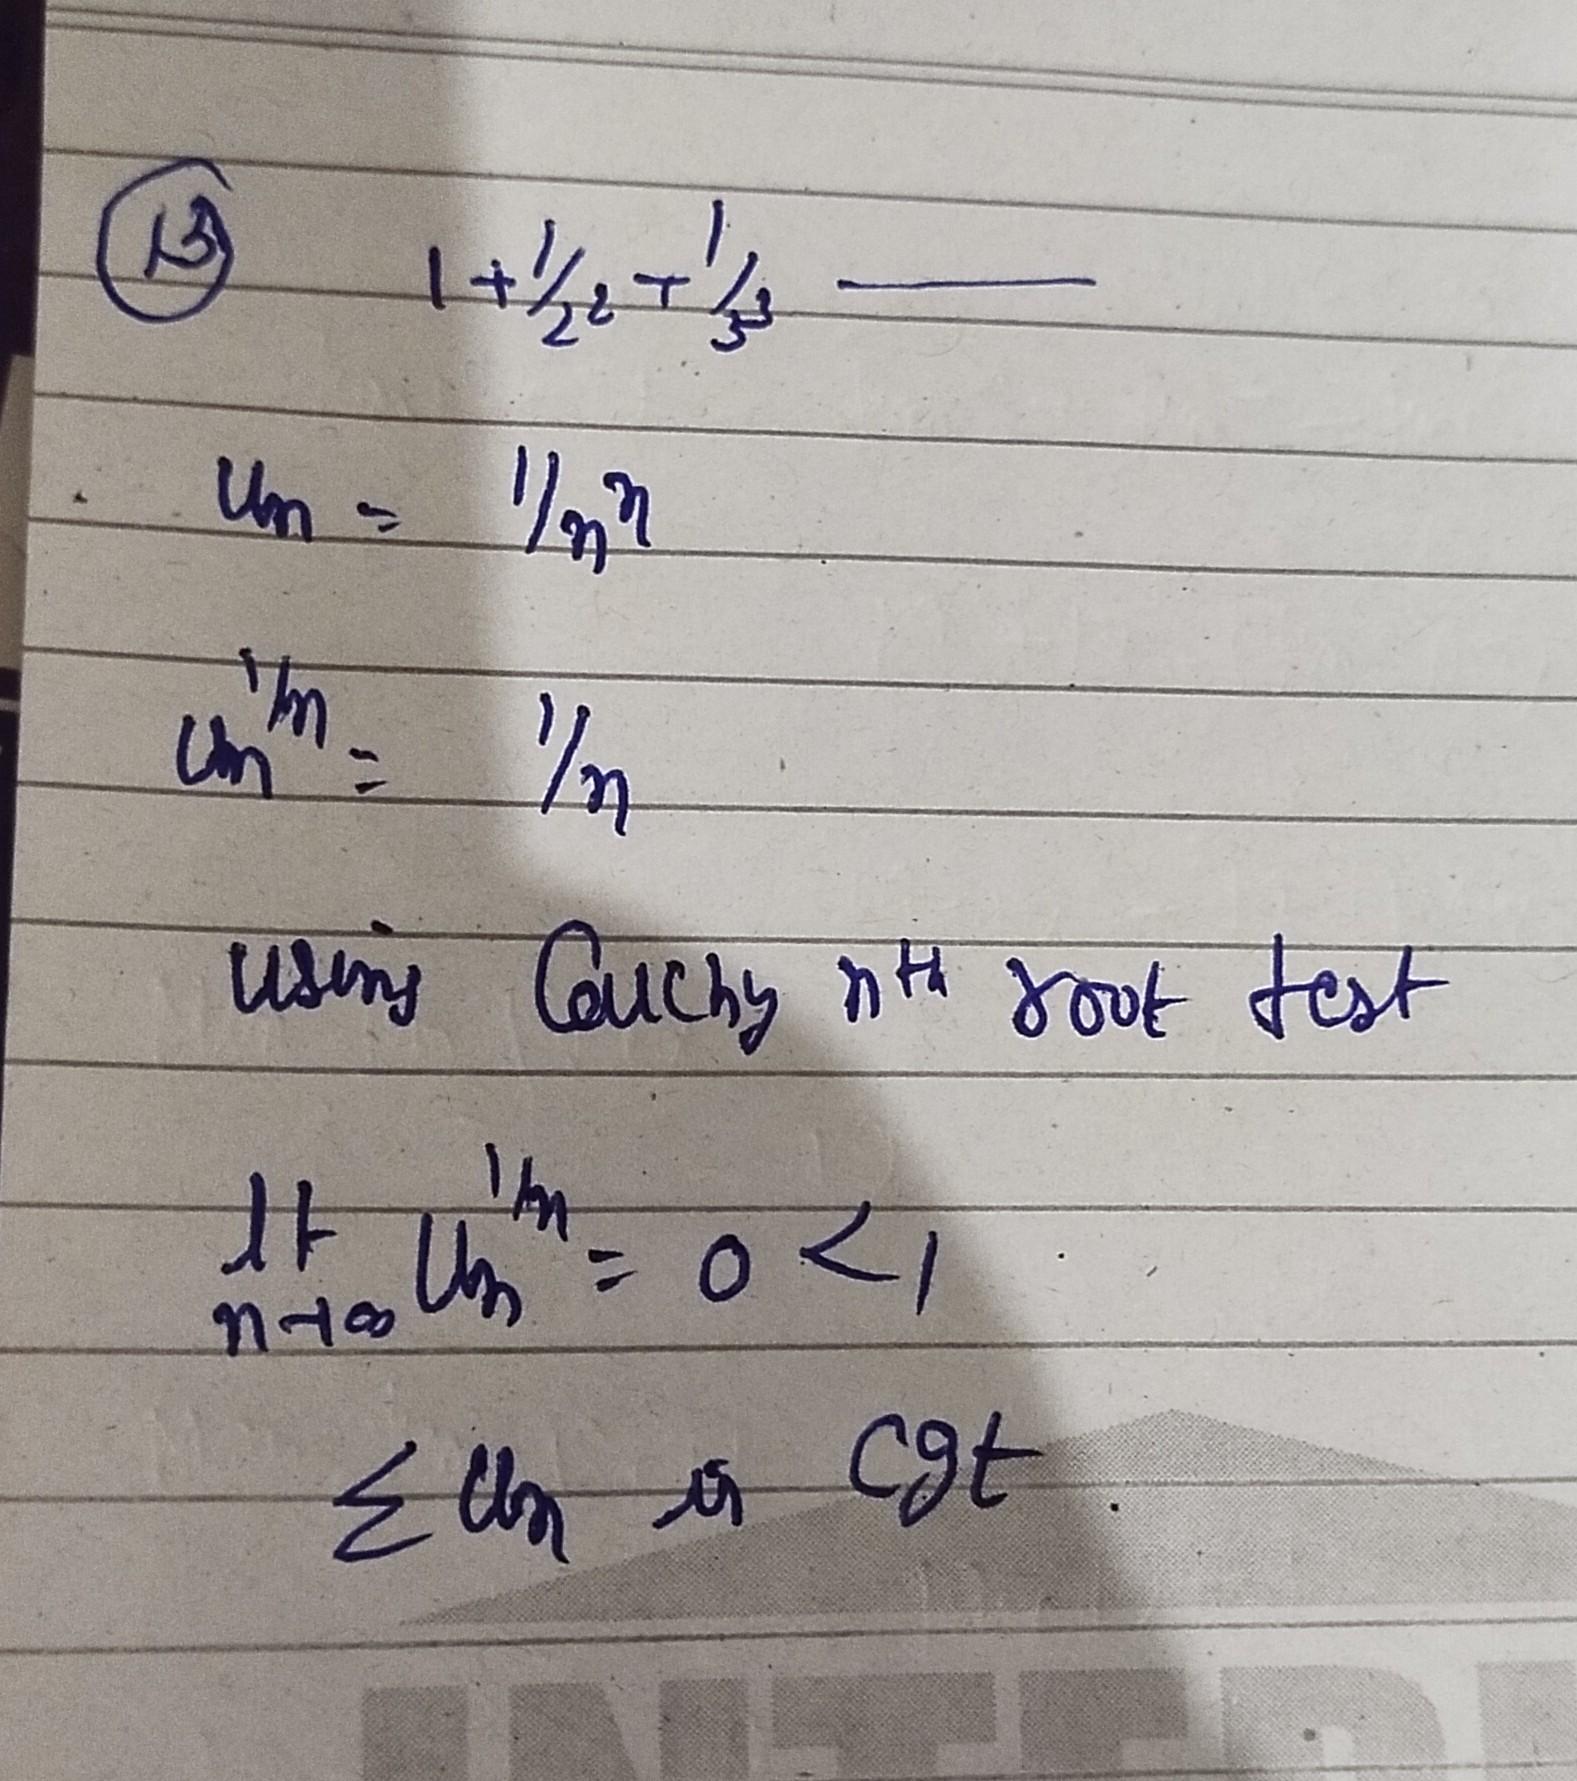 13 1 + 1/2² + 1/3³ ———
Un = 1/nⁿ
Un^1/n = 1/n
using Cauchy nth root test
lt Un^1/n = 0 < 1
n→∞
Σ Un is cgt.